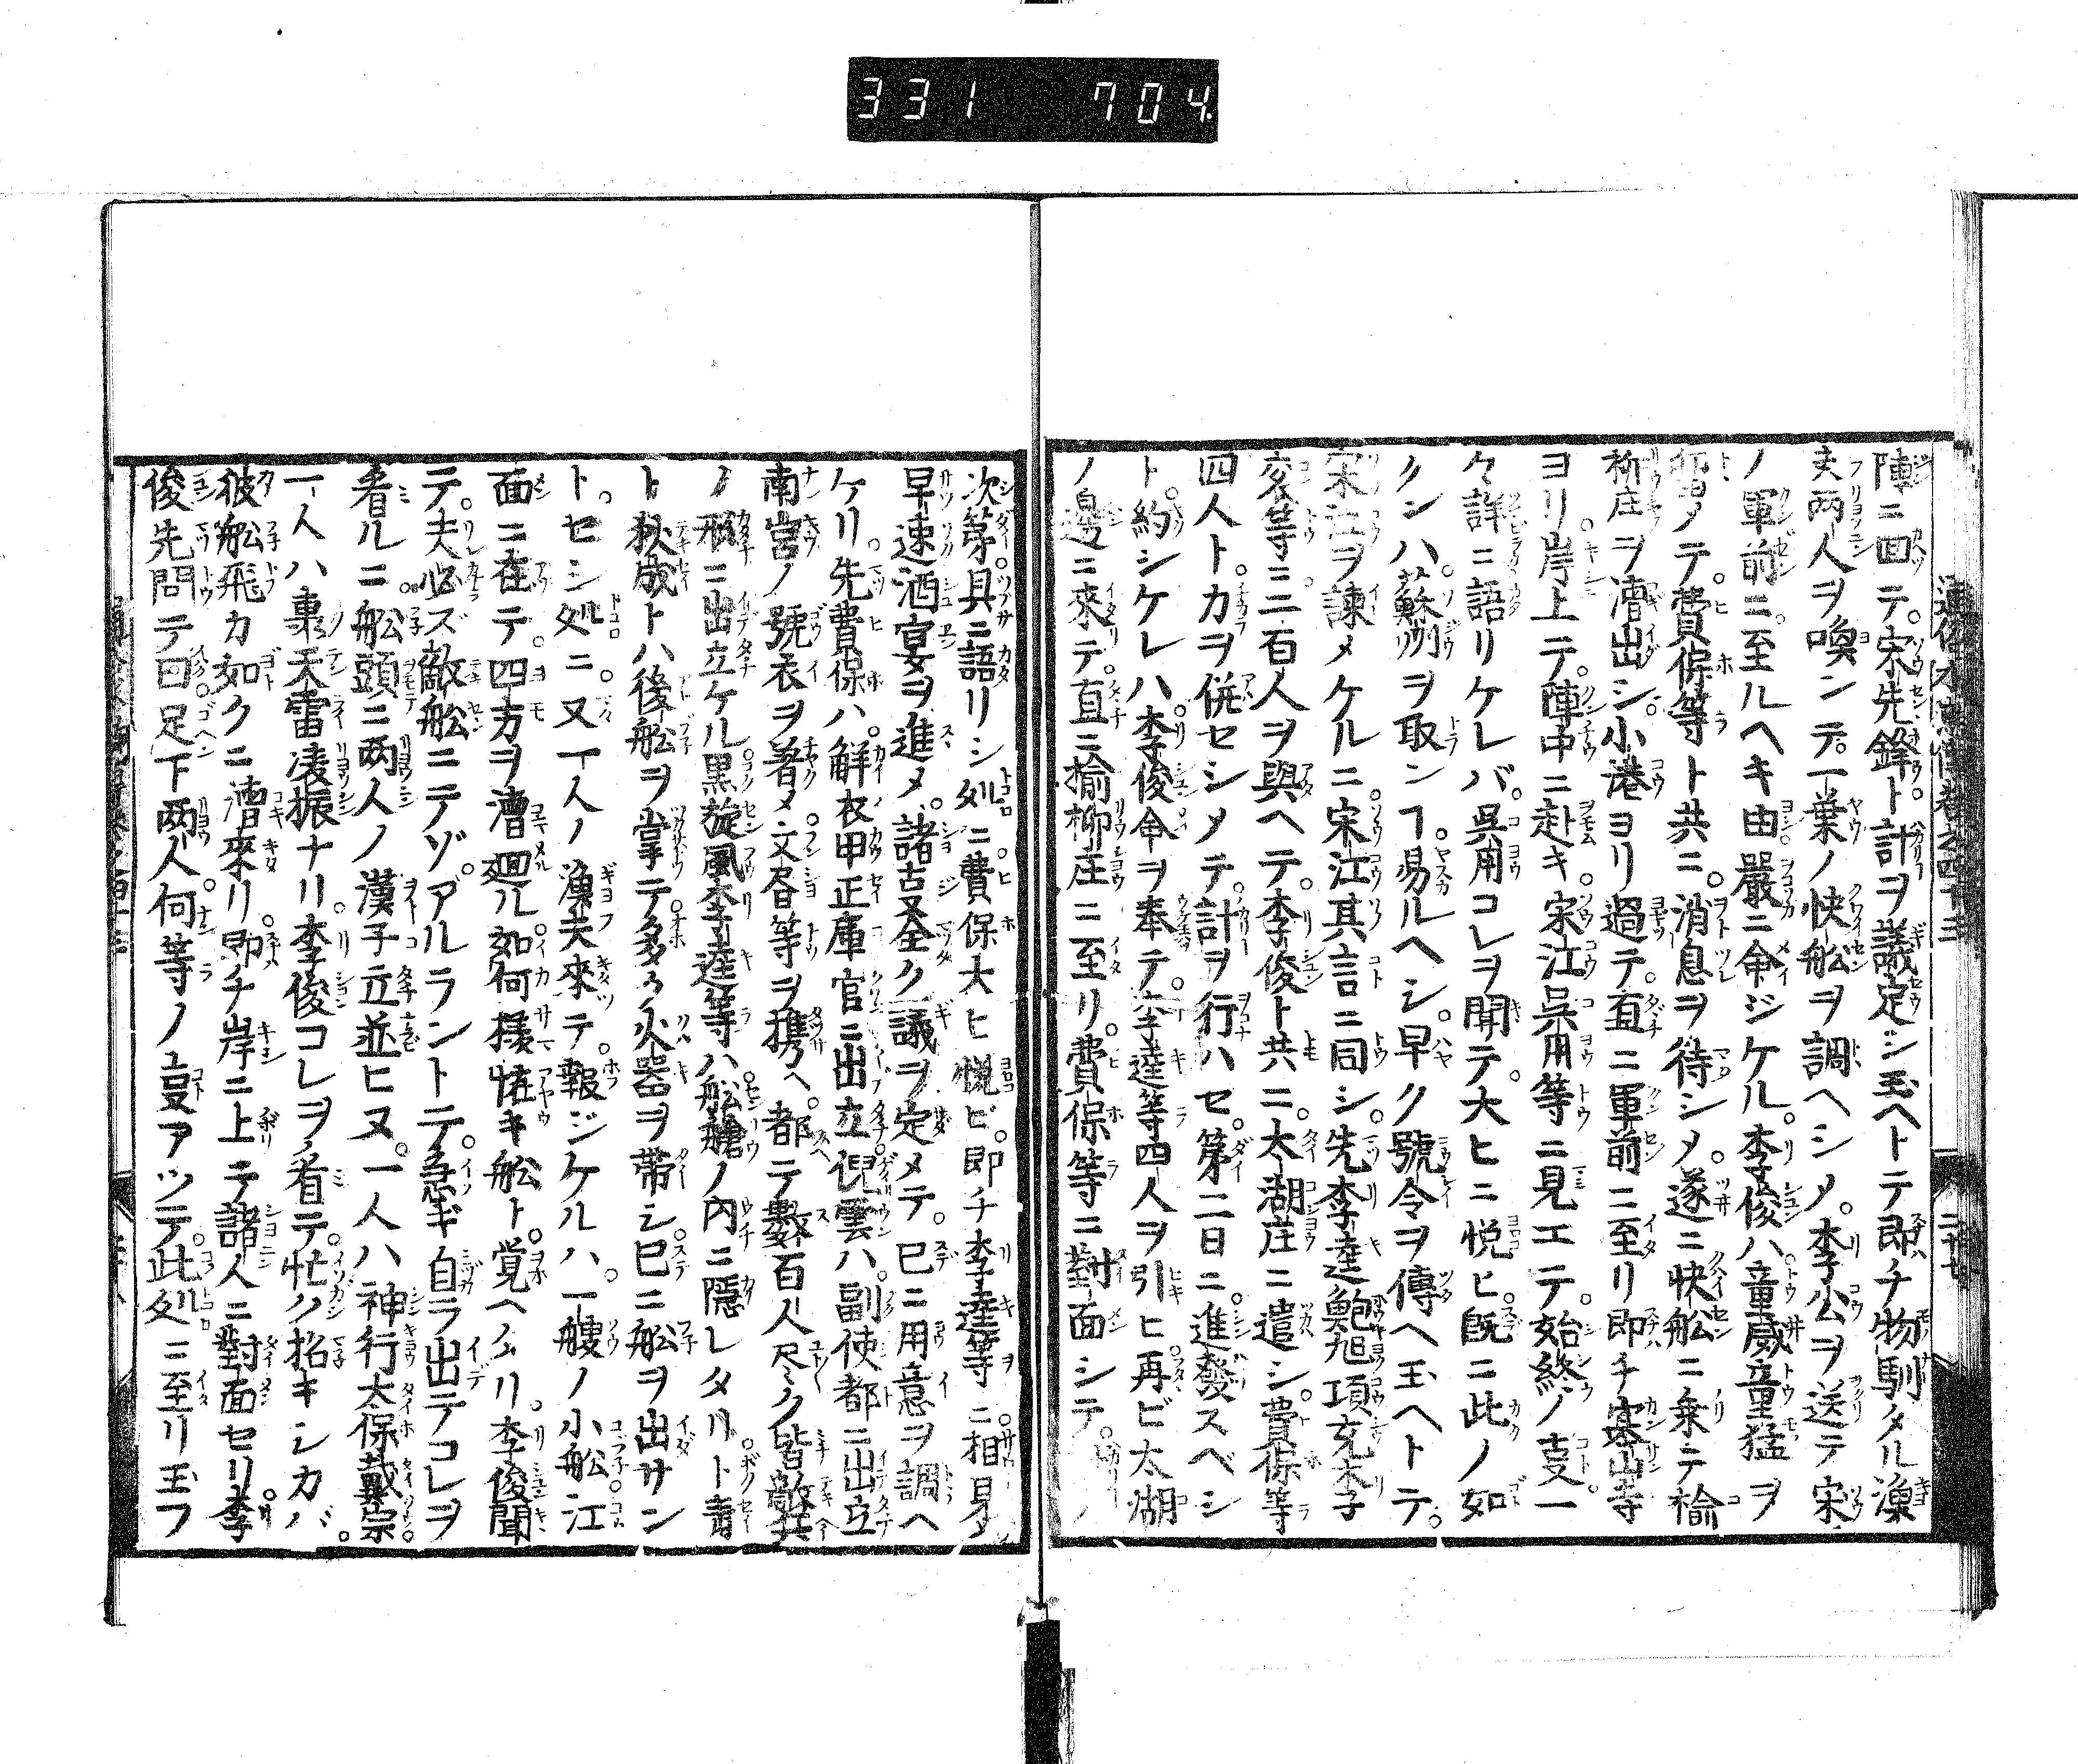 331 704
陣ニ回テ。宋先鋒ト計ヲ議定シ玉ヘトテ即チ物馴タル漁
夫两人ヲ喚ンデ一葉ノ快舩ヲ調ヘシメ。李公ヲ送テ宋
ノ軍前ニ。至ルヘキ由嚴ニ命ジケル。李俊ハ童威童猛ヲ
畄メテ。費保等ト共ニ。消息ヲ待シメ。遂ニ快舩ニ乗テ楡
柳庄ヲ漕出シ。小港ヨリ過テ。直ニ軍前ニ至リ即チ寒山寺
ヨリ岸上テ。陣中ニ赴キ。宋江呉用等ニ見エテ。始終ノ叓一
々詳ニ語リケレバ。呉用コレヲ聞テ。大ヒニ悦ヒ。既ニ此ノ如
クンハ。蘇州ヲ取ンヿ。易ルヘシ。早ク號令ヲ傳ヘ玉ヘトテ。
宋江ヲ諫メケルニ。宋江其言ニ同シ。先李逵鮑旭項充李
衮等ニ。二百人ヲ與ヘテ。李俊ト共ニ。太湖庄ニ遣シ。費保等
四人ト。カヲ併セシメテ。計ヲ行ハセ。第二日ニ。進發スベシ
ト。約シケレハ。李俊命ヲ奉テ。李逵等四人ヲ引ヒ再ビ太湖
ノ邊ニ來テ。直ニ楡柳庄ニ至リ。費保等ニ對面シテ。
次第。具ニ語リシ処ニ。費保大ヒ悦ビ。即チ李逵等ニ。相見メ
早速酒宴ヲ進メ。諸吉叓全ク議ヲ定メテ。已ニ用意ヲ調ヘ
ケリ。先費保ハ。觧衣甲正庫官ニ出立。倪雲ハ。副使都ニ出立
南宮ノ號衣ヲ著メ。文書等ヲ携ヘ。都テ數百人尽ク皆敵兵
ノ形ニ出立ケル。黒旋風李逵等ハ。舩艙ノ内ニ隱レタリ。ト青
ト狄成トハ後舩ヲ掌テ。多ク火器ヲ帯シ。已ニ舩ヲ出サン
ト。セシ処ニ。又一人ノ漁夫來テ。報ジケルハ。一艘ノ小舩。江
面ニ在テ。四方ヲ漕廻ル。如何様怪キ舩ト。覚ヘ𬼂リ。李俊聞
テ。夫必ズ敵舩ニテゾ。アルラントテ。急ギ自ラ出テコレヲ
看ルニ。舩頭ニ两人ノ漢子立並ヒヌ。一人ハ神行太保戴宗。
一人ハ轟天雷凌振ナリ。李俊コレヲ看テ。忙ク招キシカバ。
彼舩飛カ如クニ漕來リ。即チ岸ニ上テ諸人ニ對面セリ。李
俊先問テ曰。足下两人。何等ノ叓アッテ。此処ニ至リ玉フ